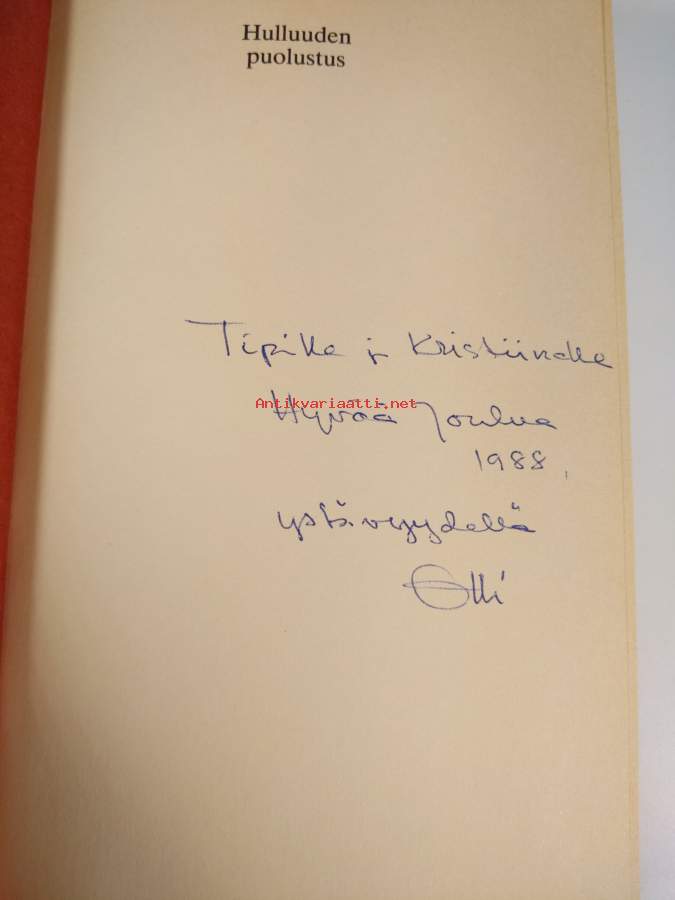 Hulluuden
puolustus
Tipille ja Kristiinalle
Antikvariaatti.net
Hyvää Joulua
1988,
ystävyydellä
Olli